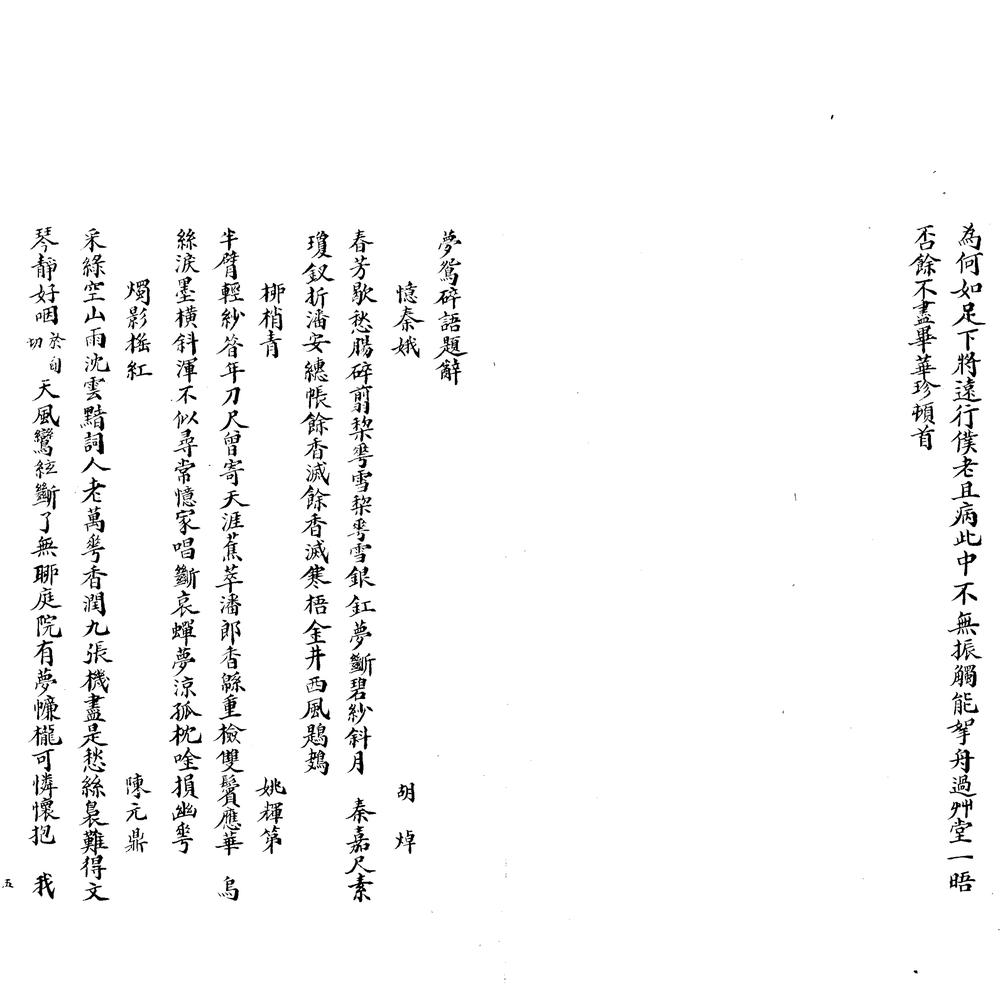 為何如足下將遠行僕老且病此中不無振觸能拏舟過艸堂一晤
否餘不盡畢華珍頓首
夢鴛碎語題辭
憶秦娥 胡焯
春芳歇愁腸碎剪棃雩雪棃雩雪銀釭夢斷碧紗斜月 秦嘉尺素
瓊釵折潘安繐帳餘香滅餘香滅寒梧金井西風鶗鴂
栁梢青 姚輝第
半臂輕紗筓年刀尺曾寄天涯蕉萃潘郎香緜重檢雙鬢應華 烏
絲淚墨橫斜渾不似尋常憶家唱斷哀蟬夢涼孤枕唑損幽雩
燭影搖紅 陳元鼎
采綠空山雨沈雲黯詞人老萬雩香潤九張機盡是愁絲裊難得文
琴靜好咽於旬切天風鸞絃斷了無聊庭院有夢㡘櫳可憐懷抱 我
五